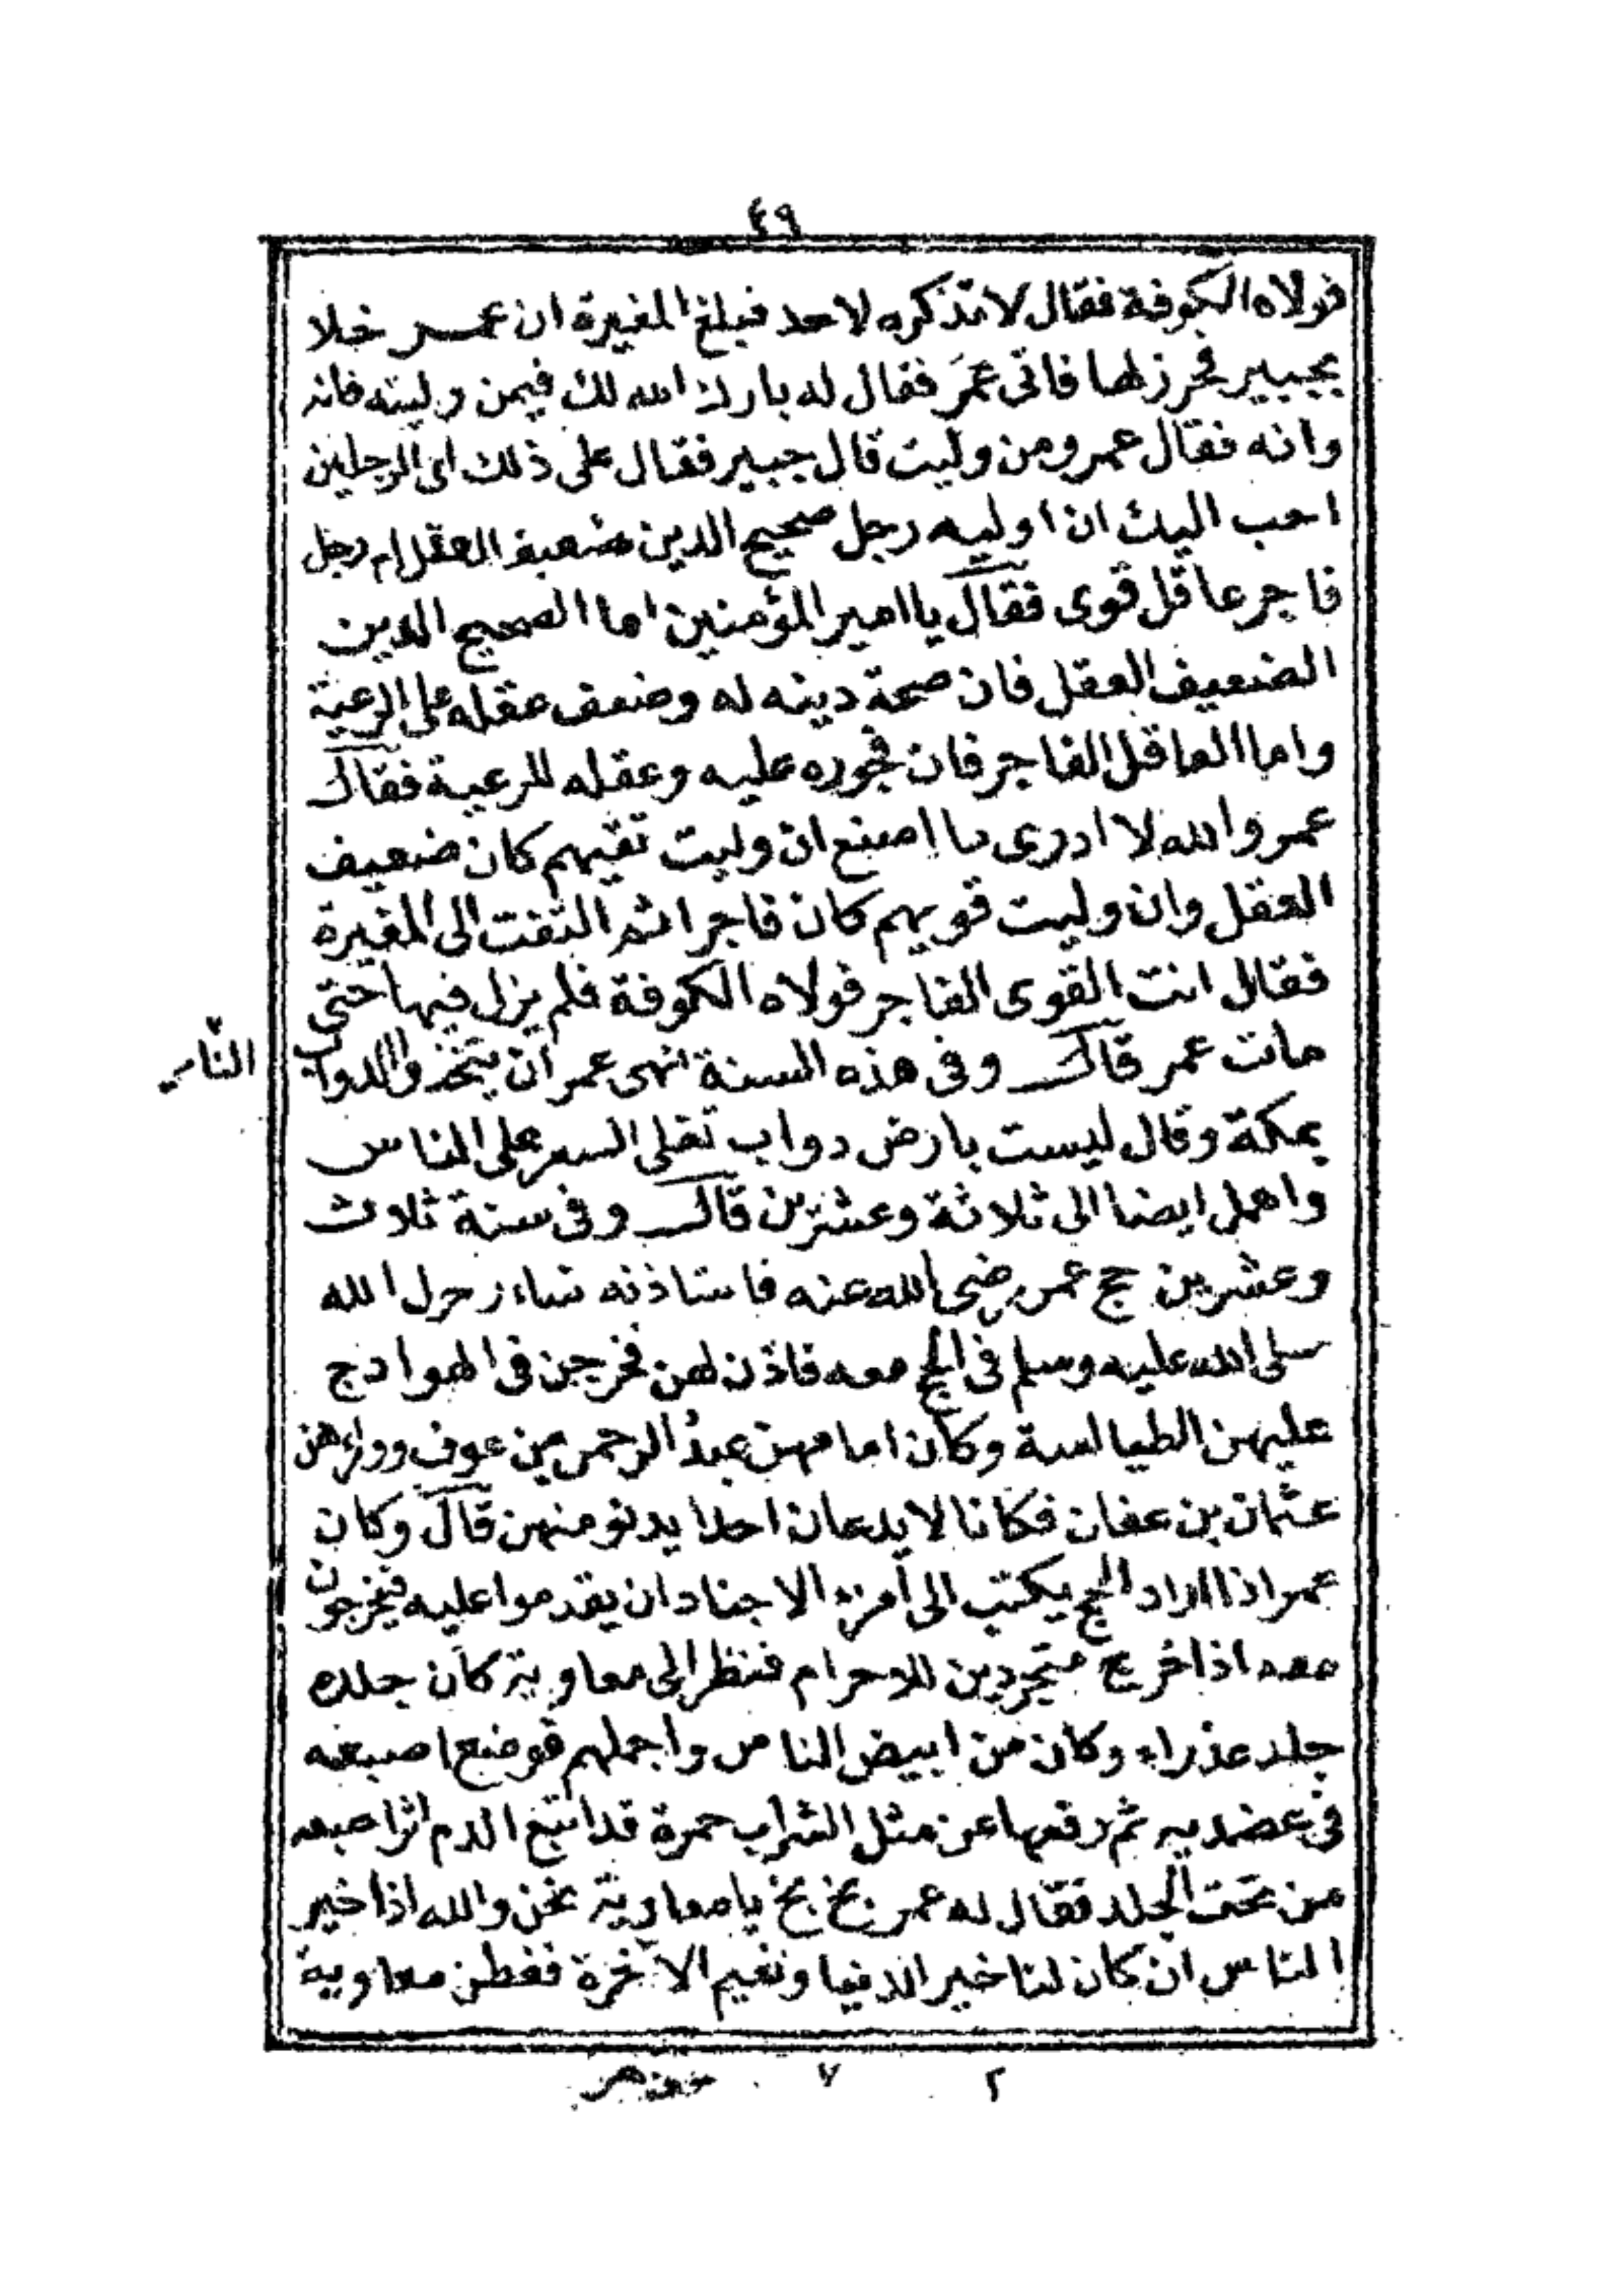 ٤٩
فولاه الكوفة فقال لا تذكره لاحد فبلغ المغيرة ان عمر خلا
بجبير فخرز لها فاتى عمر فقال له بارك الله لك فيمن وليته فانه
وانه فقال عمر ومن وليت قال جبير فقال على ذلك اى الرجلين
احب اليك ان اوليه رجل صحيح الدين ضعيف العقل ام رجل
فاجر عاقل قوى فقال يا امير المؤمنين اما الصحيح الدين
الضعيف العقل فان صحة دينه له وضعف عقله على الرعية
واما العاقل الفاجر فان فجوره عليه وعقله للرعية فقال
عمر والله لا ادرى ما اصنع ان وليت تقيهم كان ضعيف
العقل وان وليت قويهم كان فاجرا ثم التفت الى المغيرة
فقال انت القوى الفاجر فولاه الكوفة فلم يزل فيها حتى
مات عمر قال وفى هذه السنة نهى عمر ان يتخذوا الدواب
الناس
بمكة وقال ليست بارض دواب تغلى السعر على الناس
واهمل ايضا الى ثلاثة وعشرين قال وفى سنة ثلاث
وعشرين حج عمر رضى الله عنه فاستاذنه نساء رسول الله
صلى الله عليه وسلم فى الحج معه فاذن لهن فخرجن فى الهوادج
عليهن الطيالسة وكان امامهن عبد الرحمن بن عوف ووراءهن
عثمان بن عفان فكانا لا يدعان احدا يدنو منهن قال وكان
عمر اذا اراد الحج يكتب الى أمراء الاجناد ان يقدموا عليه فيخرجون
معه اذا خرج متجردين للاحرام فنظر الى معاوية كان جلده
جلد عذراء وكان من ابيض الناس واجملهم فوضع اصبعه
فى عضديه ثم رفعها عن مثل الشراب حمرة قد اتبع الدم اثر اصبعه
من تحت الجلد فقال له عمر بخ بخ يا معاوية نحن والله اذا خير
الناس ان كان لنا خير الدنيا ونعيم الآخرة ففطن معاوية
٢ ٧